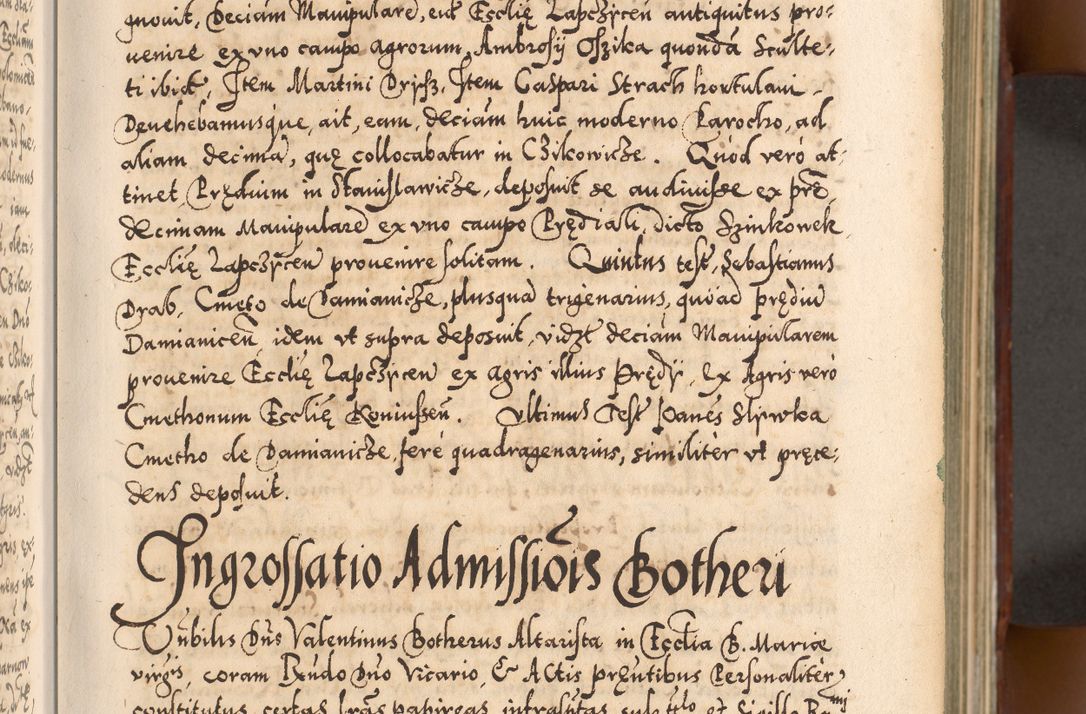 gnouit, Deciam Manipularē, eidē Ecclię Lapczÿcen̄ antiquitus pro-
uenire ex vno campo agrorum Ambrosij Oszika quondā Sculte-
ti ibidē, Item Martini Drysz, Item Caspari Strach hortulani.
Deuehebamusque, ait, eam, deciam huic moderno Parocho, ad
aliam decimā, quę collocabatur in Czikowicze. Quod verò at-
tinet Prędium in Stanislawicze, deposuit se audiuisse ex prē
decimam Manipularē ex vno campo Prędiali, dicto Szinkowek
Ecclię Lapczÿcen̄ prouenire solitam. Quintus test, Sebastianus
Drab, Cmeto de Damianicze, plusquā trigenarius, quoad prędiū
Damianicen̄, idem vt supra deposuit, vidzt deciam Manipularem
prouenire Ecclię Lapczÿcen̄ ex agris illius Prędÿ, Ex Agris verò
Cmethonum Ecclię Koniuszen̄. Vltimus Test Joanēs Sliwka
Cmetho de Damianicze, ferè quadragenarius, similitèr vt pręce-
dens deposuit.
Ingrossatio Admissiōis Botheri
Nūbilis Dn̄s Valentinus Botherus Altarista in Ecclia B. Mariæ
virgīs, coram Rn̄do Dn̄o Vicario, & Actis prēntibus Personalitèr
constitutus, certas lrās papireas, infrascriptas, sub ttlo et Sigillo Rmi